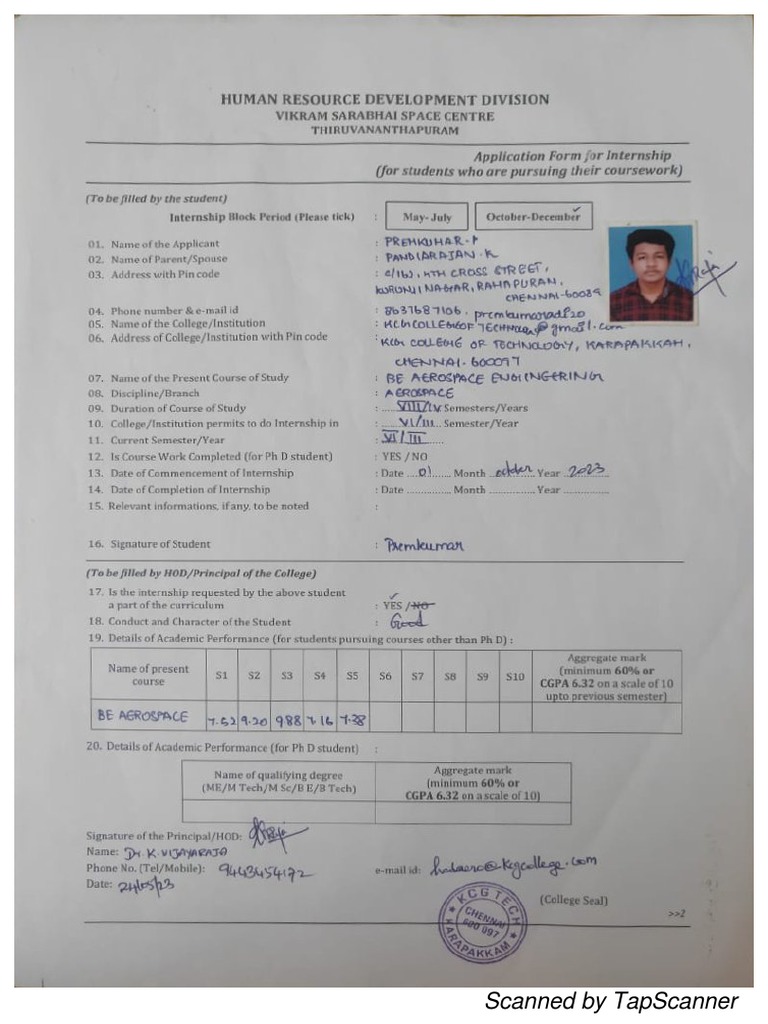 HUMAN RESOURCE DEVELOPMENT DIVISION
VIKRAM SARABHAI SPACE CENTRE
THIRUVANANTHAPURAM
Application Form for Internship
(for students who are pursuing their coursework)
(To be filled by the student)
Internship Block Period (Please tick) : May- July October-December ✓
01. Name of the Applicant : PREMKUMAR-P
02. Name of Parent/Spouse : PANDIARAJAN-K
03. Address with Pin code : 4TH CROSS STREET,
KURUNJI NAGAR, RAMAPURAM,
CHENNAI-600089
04. Phone number & e-mail id : 8637687106, premkumarad120
05. Name of the College/Institution : KCG COLLEGE OF @gmail.com
06. Address of College/Institution with Pin code : KCG COLLEGE OF TECHNOLOGY, KARAPAKKAM,
CHENNAI-600097
07. Name of the Present Course of Study : BE AEROSPACE ENGINEERING
08. Discipline/Branch : AEROSPACE
09. Duration of Course of Study : .....VIII/IV Semesters/Years
10. College/Institution permits to do Internship in : .....VI/III... Semester/Year
11. Current Semester/Year : VI/III......
12. Is Course Work Completed (for Ph D student) : YES / NO
13. Date of Commencement of Internship : Date ....01.... Month october Year 2023
14. Date of Completion of Internship : Date .............. Month .............. Year ..............
15. Relevant informations, if any, to be noted :
16. Signature of Student : Premkumar
(To be filled by HOD/Principal of the College)
17. Is the internship requested by the above student
a part of the curriculum : YES / NO
18. Conduct and Character of the Student : Good
19. Details of Academic Performance (for students pursuing courses other than Ph D) :
Name of present course S1 S2 S3 S4 S5 S6 S7 S8 S9 S10 Aggregate mark (minimum 60% or CGPA 6.32 on a scale of 10 upto previous semester)
BE AEROSPACE 7.52 9.20 988 7.16 7.38
20. Details of Academic Performance (for Ph D student) :
Name of qualifying degree (ME/M Tech/M Sc/B E/B Tech) Aggregate mark (minimum 60% or CGPA 6.32 on a scale of 10)
Signature of the Principal/HOD:
Name: Dr. K. VIJAYARAJA
Phone No. (Tel/Mobile): 9443454172 e-mail id: hodaero@kcgcollege.com
Date: 24/05/23
(College Seal)
KCG TECH
CHENNAI
600 097
KARAPAKKAM
>>2
Scanned by TapScanner